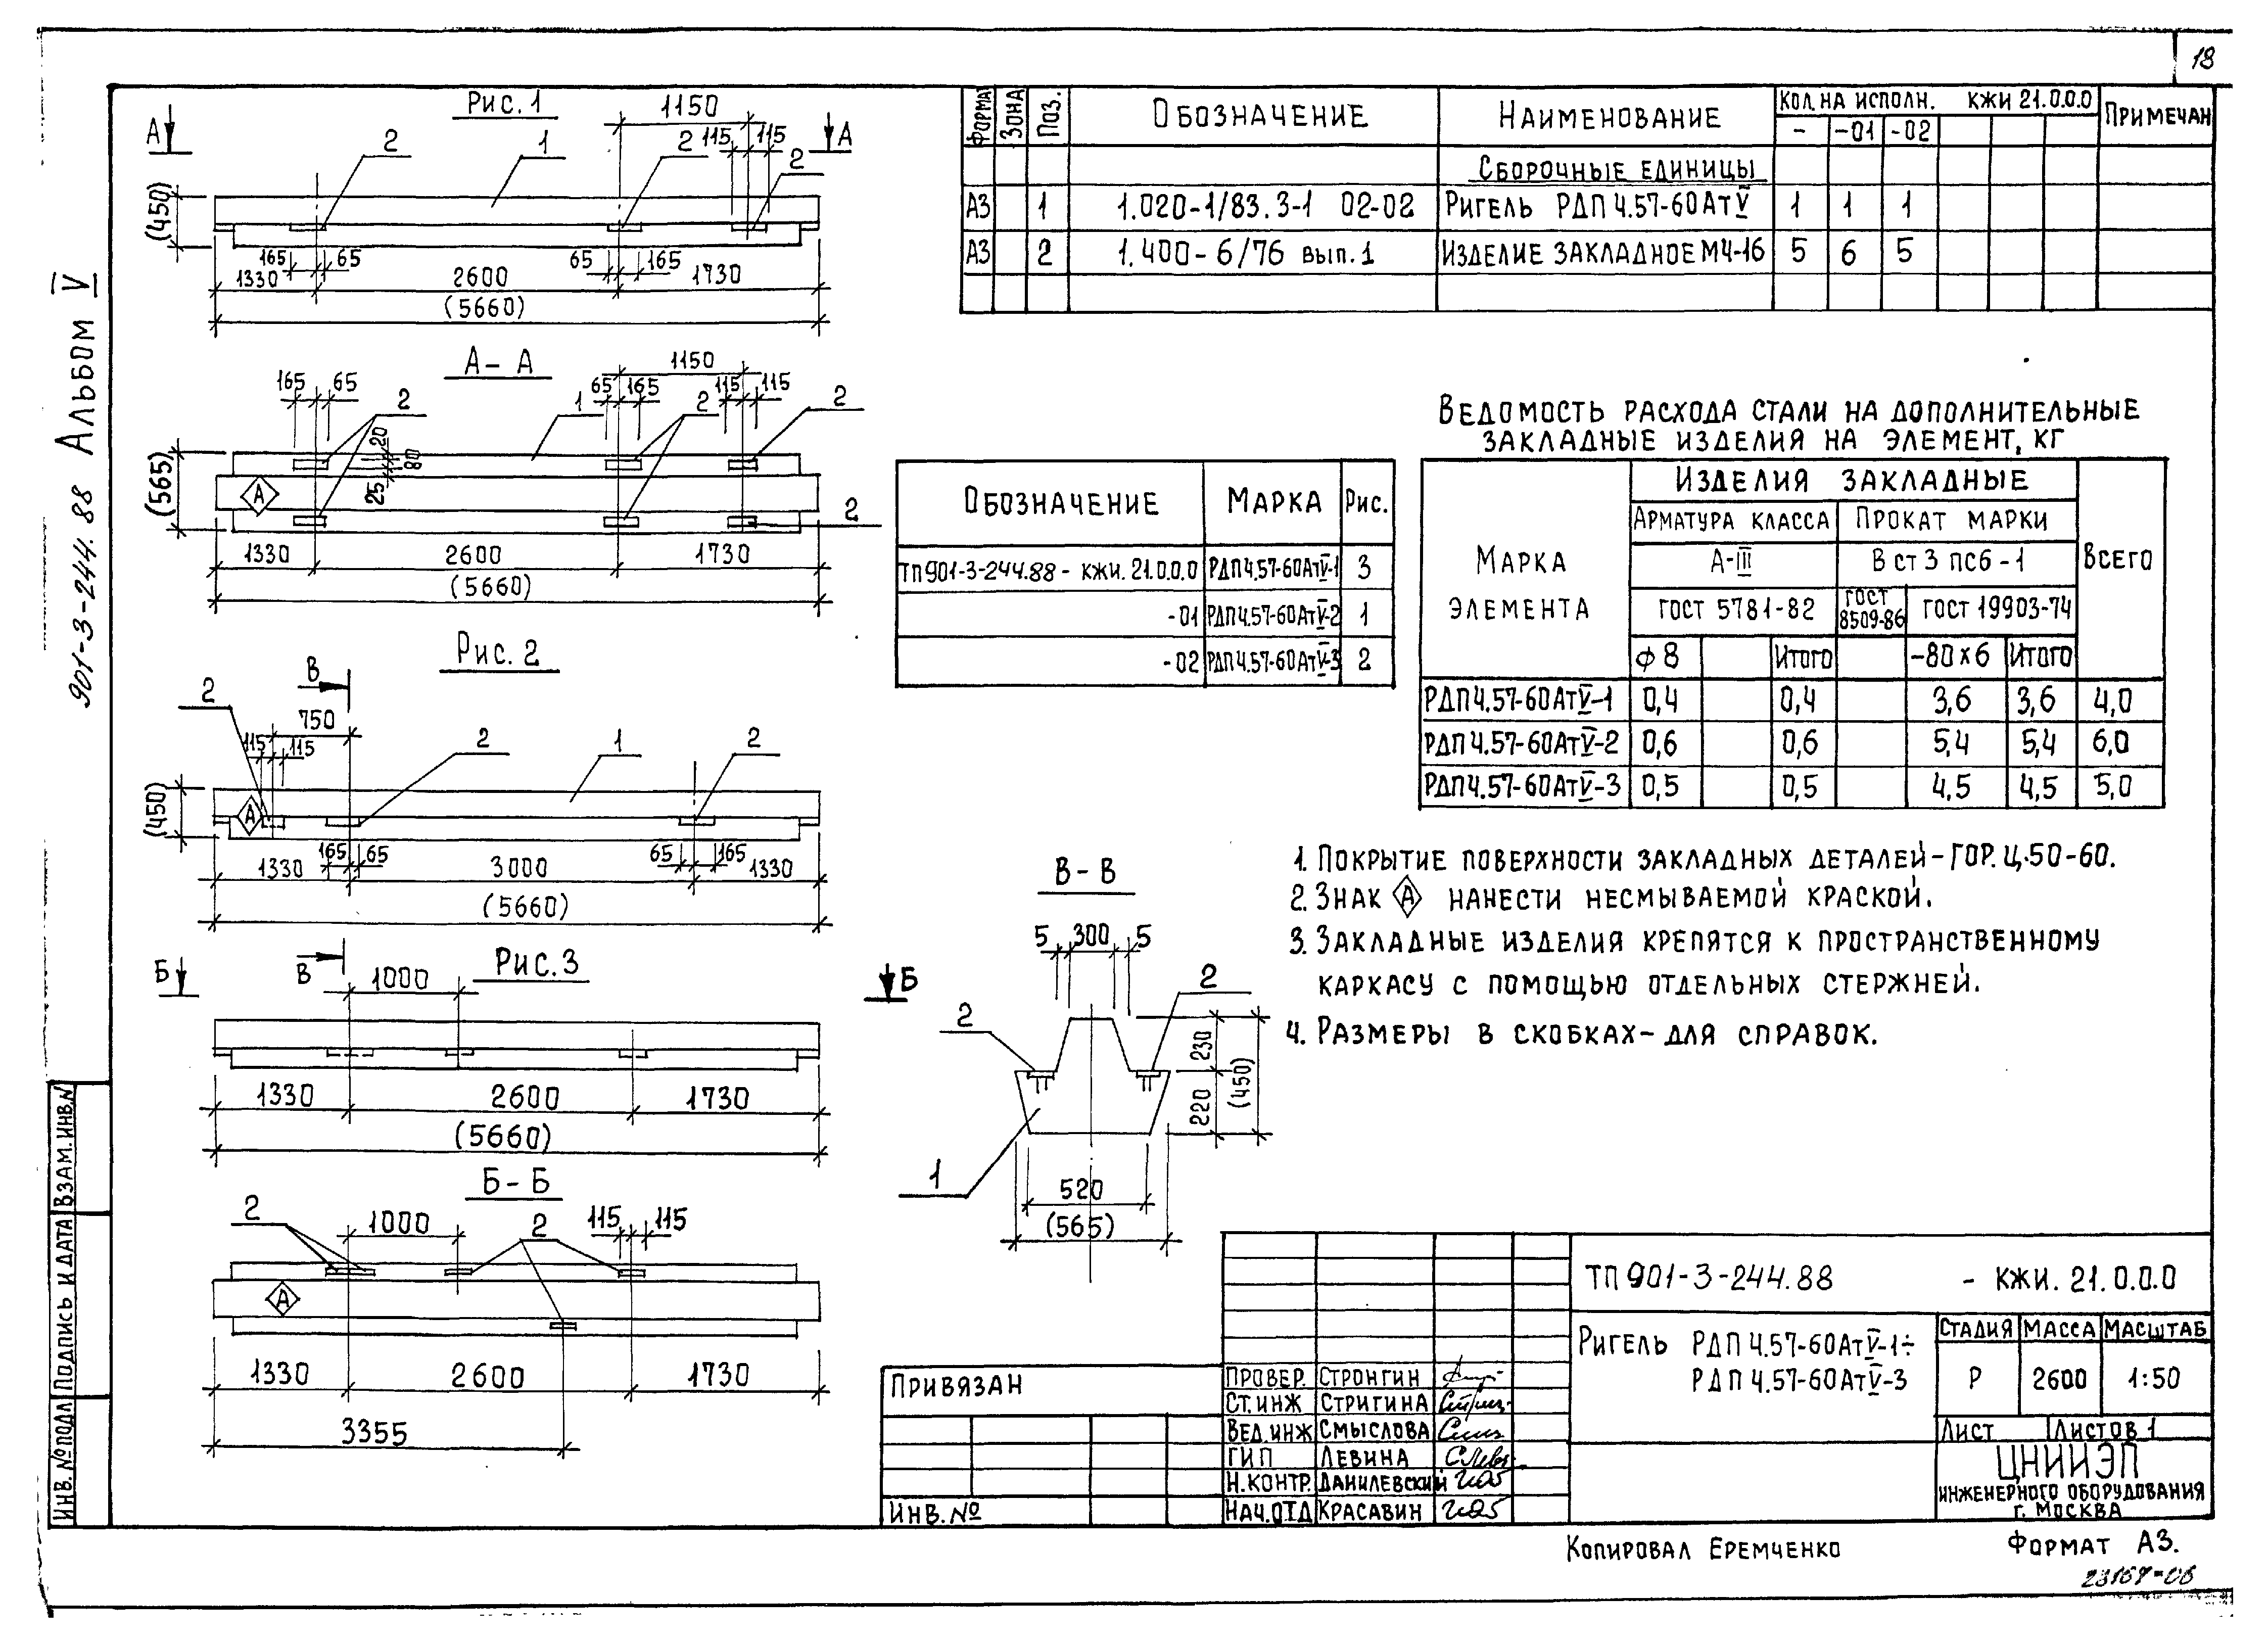 18
901-3-244.88 Альбом V
Рис. 1
А А
1150
115 115
2 1 2 2
(450)
165 65 65 165
1330 2600 1730
(5660)
А - А
1150
165 65 65 165 115 115
2 1 2 2
20
80
25
(565)
А
2
1330 2600 1730
(5660)
Рис. 2
В
2
750
115 115
2 1 2
(450)
А
165 65 65 165
1330 3000 1330
(5660)
В
Рис. 3
Б Б
1000
1330 2600 1730
(5660)
Б - Б
2 1000 2 115 115
А
1330 2600 1730
3355
В - В
5 300 5
2 2
230
220
(450)
1
520
(565)
Формат Зона Поз. Обозначение Наименование Кол. на исполн. КЖИ 21.0.0.0 Примечан
- -01 -02
Сборочные единицы
А3 1 1.020-1/83.3-1 02-02 Ригель РДП 4.57-60АтV 1 1 1
А3 2 1.400-6/76 вып.1 Изделие закладное М4-16 5 6 5
Обозначение Марка Рис.
ТП901-3-244.88- КЖИ. 21.0.0.0 РДП4.57-60АтV-1 3
-01 РДП4.57-60АтV-2 1
-02 РДП4.57-60АтV-3 2
Ведомость расхода стали на дополнительные
закладные изделия на элемент, кг
Марка элемента
Изделия закладные
Всего
Арматура класса Прокат марки
А-III В ст 3 пс6-1
ГОСТ 5781-82 ГОСТ 8509-86 ГОСТ 19903-74
ф8 Итого -80х6 Итого
РДП4.57-60АтV-1 0,4 0,4 3,6 3,6 4,0
РДП4.57-60АтV-2 0,6 0,6 5,4 5,4 6,0
РДП4.57-60АтV-3 0,5 0,5 4,5 4,5 5,0
1. Покрытие поверхности закладных деталей-Гор. Ц.50-60.
2. Знак А нанести несмываемой краской.
3. Закладные изделия крепятся к пространственному
каркасу с помощью отдельных стержней.
4. Размеры в скобках-для справок.
Взам. инв. №
Подпись и дата
Инв. № подл
Привязан
Инв. №
Провер. Стронгин
Ст. инж Стригина
Вед. инж Смыслова
ГИП Левина
Н. контр. Данилевский
Нач. отд Красавин
ТП901-3-244.88 - КЖИ. 21.0.0.0
Ригель РДП 4.57-60АтV-1÷
РДП 4.57-60АтV-3
Стадия Масса Масштаб
Р 2600 1:50
Лист Листов 1
ЦНИИЭП
инженерного оборудования
г. Москва
Копировал Еремченко
Формат А3.